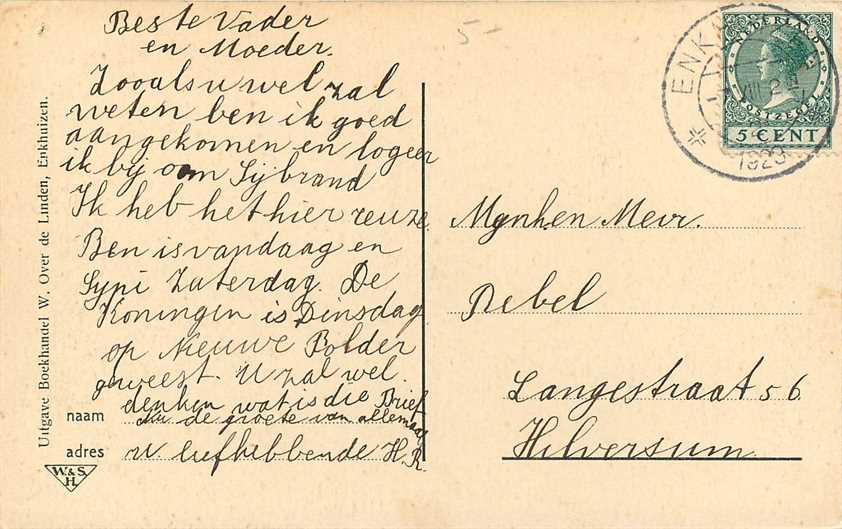 Beste Vader
en Moeder.
Zooals u wel zal
weten ben ik goed
aangekomen en logeer
ik bij oom Sijbrand
Ik heb het hier reuze.
Ben is vandaag en
Sypi Zaterdag. De
Koningin is Dinsdag
op Nieuwe Polder
geweest. U zal wel
denken wat is die Brief
de groete van allemaal
u liefhebbende H.R.
naam
adres
Uitgave Boekhandel W. Over de Linden, Enkhuizen.
W. & S.
H.
5-
ENK
VIII 2
1929
NEDERLAND
POSTZEGEL
5 CENT
Mynhen Mevr.
Rebel
Langestraat 56
Hilversum